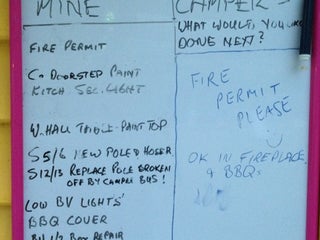 MINE
CAMPER-
WHAT WOULD YOU LIKE
DONE NEXT?
FIRE PERMIT
PAINT
KITCH SEC. LIGHT
W. HALL PAINT TOP
S5/6 NEW POLE & HOSER
S12/13 REPLACE POLE BROKEN
OFF BY CAMPER BUS!
LOW BV LIGHTS'
BBQ COVER
BBQ 1/2 BOX REPAIR
FIRE
PERMIT
PLEASE
OK IN FIREPLACE
& BBQs